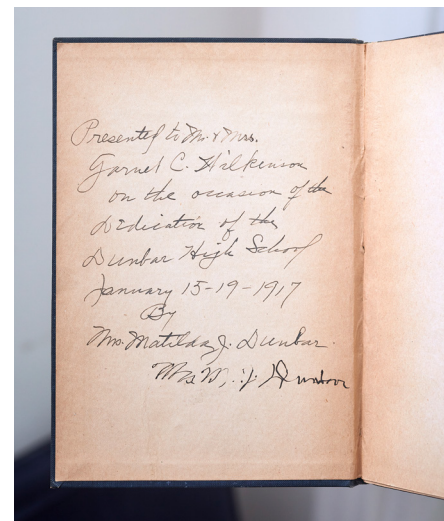 Presented to Mr. & Mrs.
Garnet C. Wilkinson
on the occasion of the
Dedication of the
Dunbar High School
January 15-19-1917
By
Mrs. Matilda J. Dunbar.
Dunbar